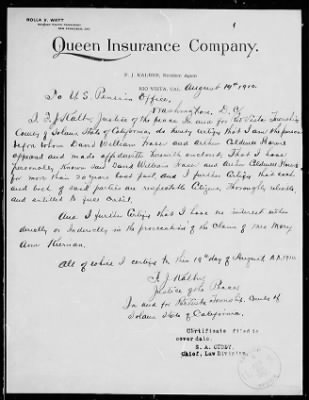 ROLLA V. WATT
SAN FRANCISCO, CAL.
Queen Insurance Company.
F. J. WALMER, Resident Agent
RIO VISTA, CAL. August 19th 1910.
To U.S. Pension Office,
Washington, D. C.
I, F. J. Justice of the peace In and for Rio Vista Township
County of Solano State of California, do hereby certify that I am the person
before whom David William and Arthur Aldwin
appeared and made affidavits herewith enclosed. That I have
personally known said David William and Arthur Aldwin
for more than 20 years last past and I further certify that each
and both of said parties are respectable Citizens, thoroughly reliable,
and entitled to full credit.
And I further certify that I have no interest either
directly or indirectly in the prosecution of the Claim of Mrs Mary
Ann Kiernan.
All of which I certify to this 19th day of August A.D. 1910
F. J.
Justice of the Peace
In and for Rio Vista Township, County of
Solano State of California.
Certificate filed to
cover date.
S. A. CUDDY,
Chief, Law Division.